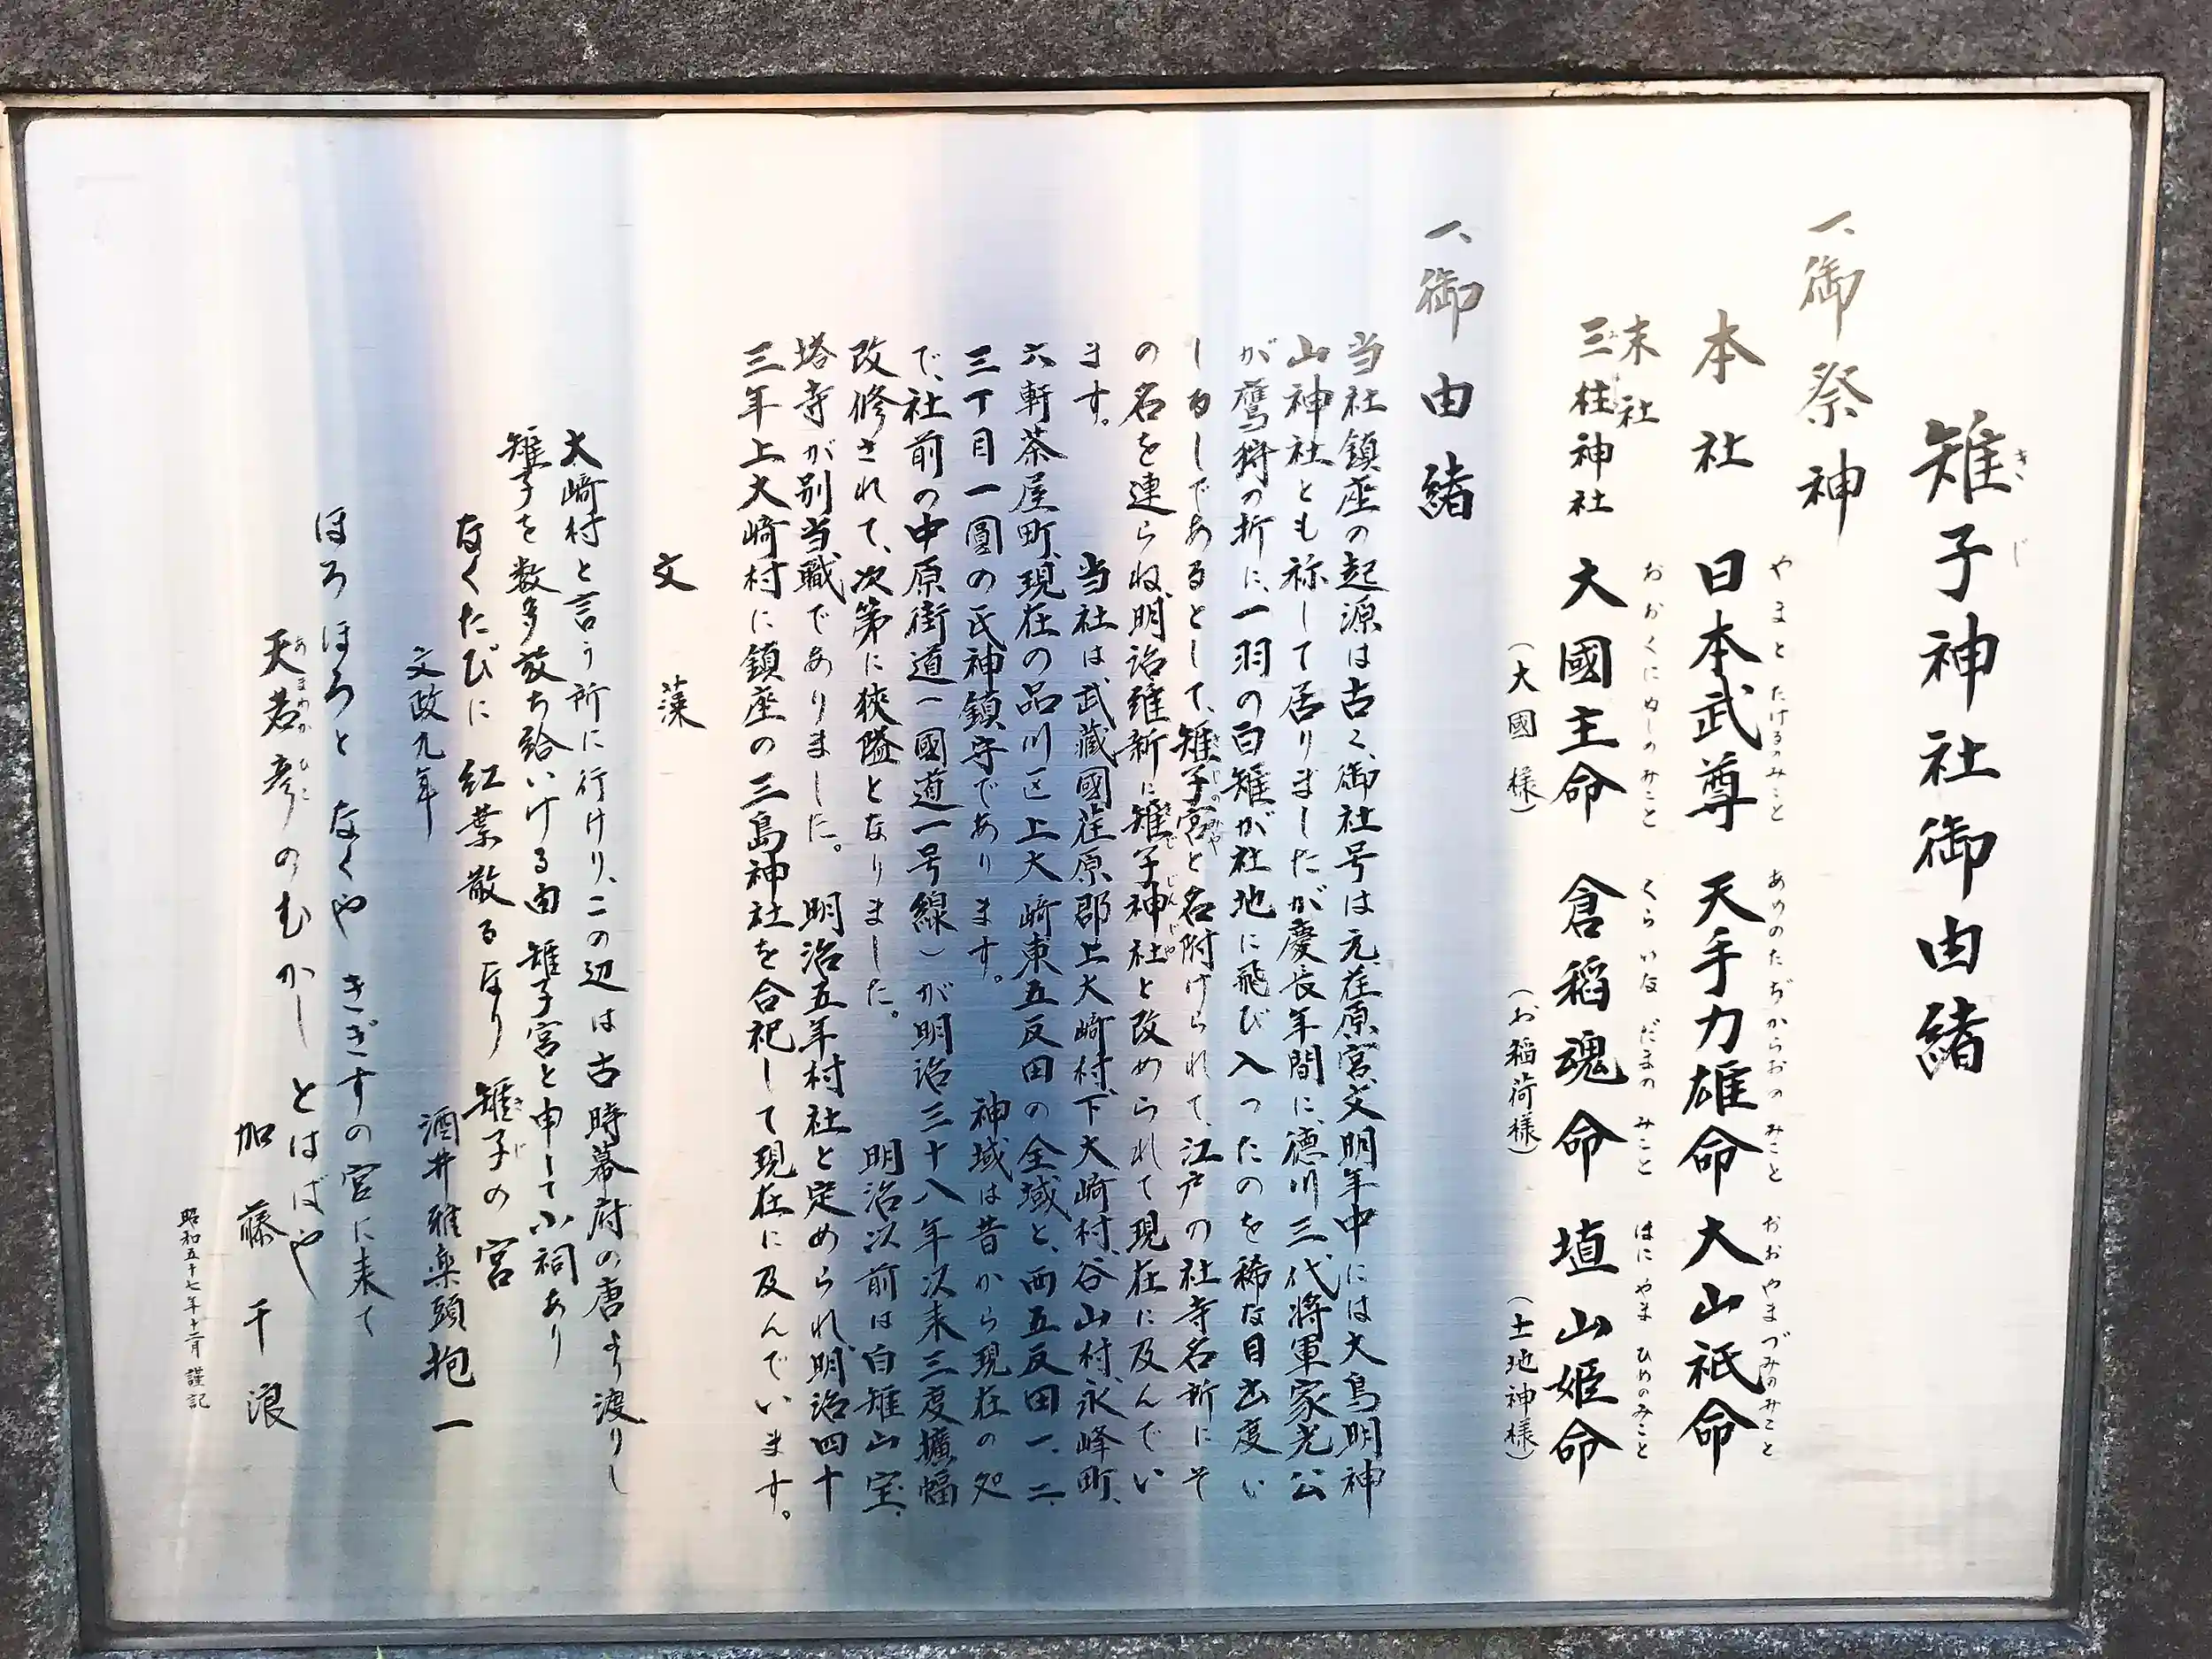 雉子神社御由緒
きじ
一、御祭神
本社 日本武尊 天手力雄命 大山祇命
やまとたけるのみこと あめのたぢからおのみこと おおやまづみのみこと
末社
三柱神社 大國主命 倉稲魂命 埴山姫命
おおくにぬしのみこと くらいなだまのみこと はにやまひめのみこと
(大國様) (お稲荷様) (土地神様)
一、御由緒
当社鎮座の起源は古く、御社号は元、荏原宮、文明年中には大鳥明神
山神社とも祢して居りましたが慶長年間に、德川三代将軍家光公
が鷹狩の折に、一羽の白雉が社地に飛び入ったのを稀な目出度い
しるしであるとして、雉子宮と名附けられて、江戸の社寺名所にそ
の名を連らね、明治維新に雉子神社と改められて現在に及んでい
ます。 当社は武藏國荏原郡上大崎村、下大崎村、谷山村、永峰町、
六軒茶屋町、現在の品川区上大崎東五反田の全域と、西五反田一、二、
三丁目一圓の氏神鎮守であります。 神域は昔から現在の処
で、社前の中原街道(國道一号線)が明治三十八年次来三度擴幅
改修されて、次第に狹隘となりました。 明治次前は白雉山宝
塔寺が別当職でありました。 明治五年村社と定められ、明治四十
三年上大崎村に鎮座の三島神社を合祀して現在に及んでいます。
文藻
大崎村と言う所に行けり、この辺は古時幕府の唐より渡りし
雉子を数多放ち給いける由 雉子宮と申して小祠あり
なくたびに 紅葉散るなり 雉子の宮
文政九年 酒井雅楽頭抱一
ほろほろと なくや きぎすの宮に来て
天若彦のむかし とはばや
あまわかひこ
加藤千浪
昭和五十七年十二月 謹記